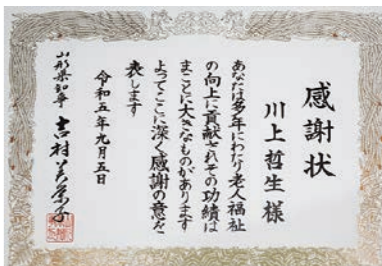 感謝状
川上哲生様
あなたは多年にわたり老人福祉
の向上に貢献されその功績は
まことに大きなものがあります
よってここに深く感謝の意を
表します
令和五年九月五日
山形県知事 吉村美栄子